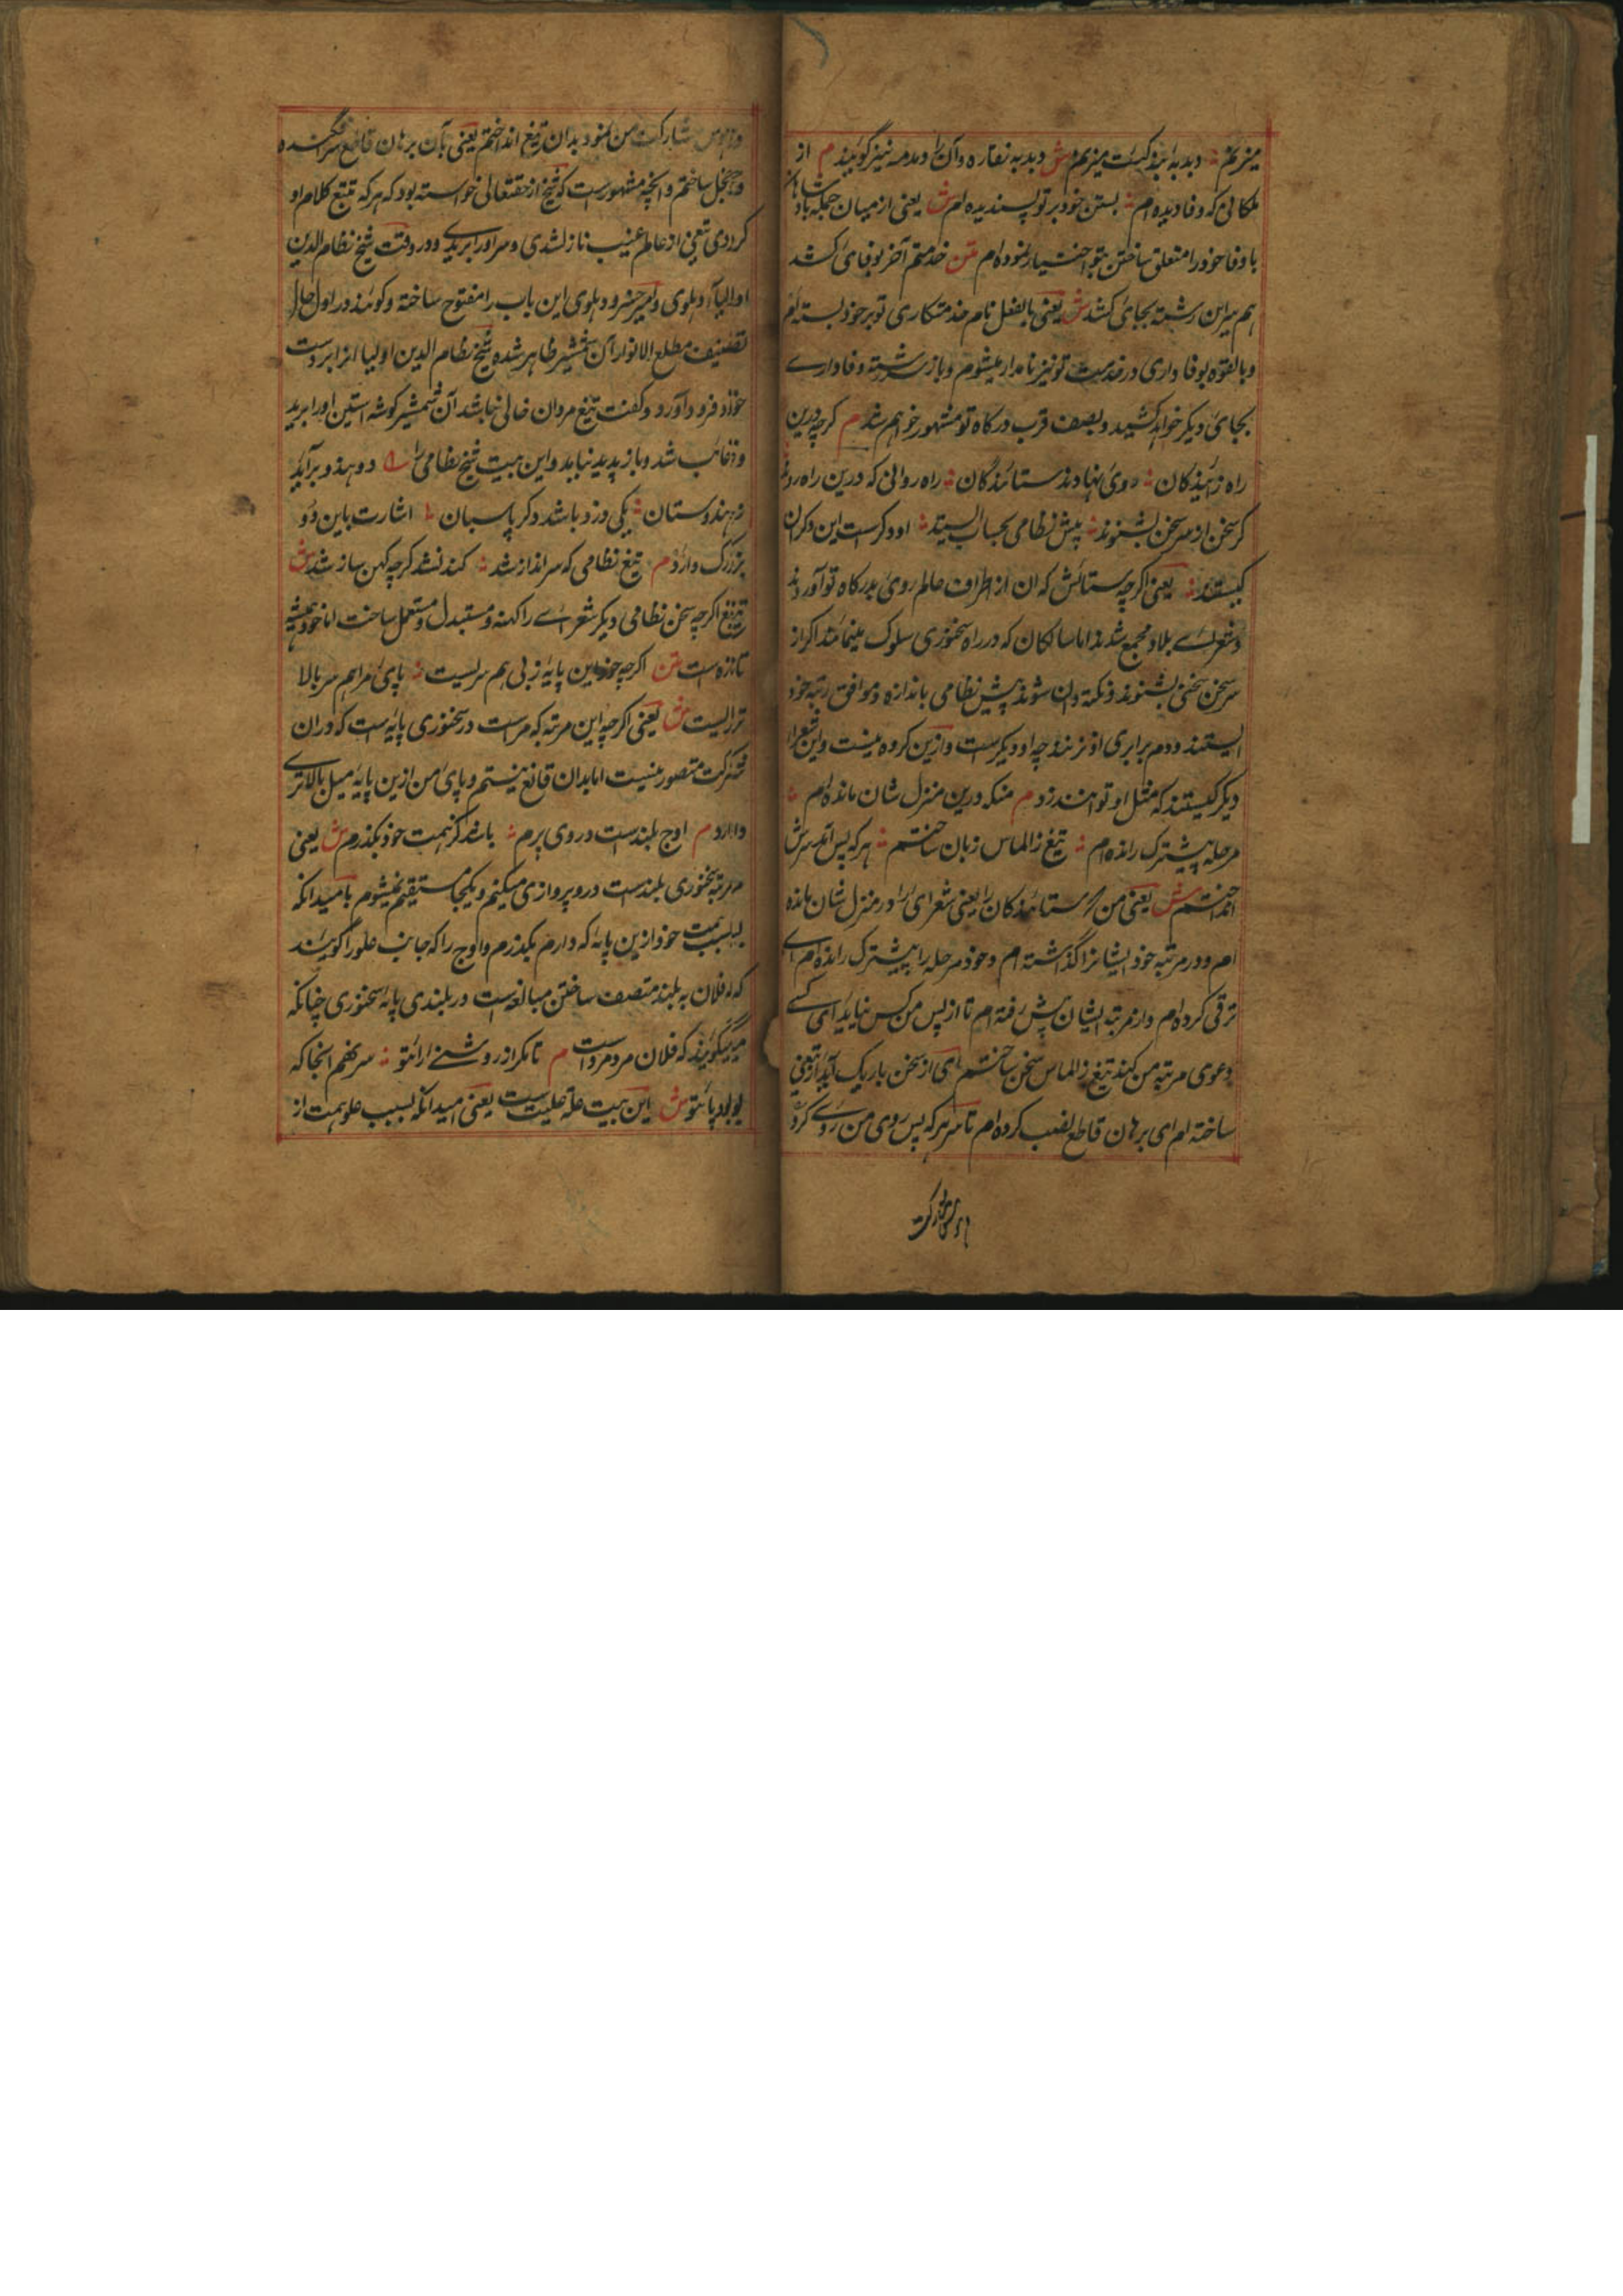 میزنم؞ دبدبه بندگیت میزنم ش دبدبه نقاره و آن را دمدمه نیز گویند م از
ملکانی که وفا دیده ام؞ بستن خود بر تو پسندیده ام ش یعنی از میان جمله بادشاهان
با وفا خود را متعلق ساختن بتو اختیار نموده ام متن خدمتم آخر بوفای کشد
هم سر این رشته بجای کشد ش یعنی بالفعل نام خدمتکاری تو بر خود بسته ام
و بالقوه بوفاداری در خدمت تو نیز نامدار میشوم و باز سر رشته وفاداری
بجای دیگر خواهد کشید و بصف قرب درگاه تو مشهور خواهم شد م گرچه درین
راه زبیندگان؞ روی نهادند ستایندگان؞ راه روانی که درین راه روند
گر سخن از سر سخن بشنوند؞ پیش نظامی بحساب ایستند؞ او دگرست این دگران
کیستند؞ یعنی اگرچه ستایش کنان از اطراف عالم روی بدرگاه تو آوردند
و شعرای بلاد مجمع شدند اما سالکان که در راه سخنوری سلوک مینمایند اگر از
سر سخن سخنی بشنوند و نکته دان شوند پیش نظامی باندازه و موافق رتبه خود
ایستند و دم برابری او نزنند چه او دیگرست و ازین گروه نیست و این شعرا
دیگر کیستند که مثل او توانند زد م منکه درین منزل شان مانده ام؞
مرحله پیشترک رانده ام؞ تیغ ز الماس زبان ساختم؞ هر که پس آمد سرش
انداختم ش یعنی من ستایندگان را یعنی شعرای را در منزل شان مانده
ام و در مرتبه خود ایشانرا گذاشته ام و خود مرحله را پیشترک رانده ام ای
ترقی کرده ام و از مرتبه ایشان پیش رفته ام تا از پس من کس نیاید ای کسی
دعوی مرتبه من کند تیغ ز الماس سخن ساختم ای از سخن باریک آبدار تیغی
ساخته ام ای برهان قاطع نصب کرده ام تا هر که پس روی من کرد
و هوس مشارکت
و هوس مشارکت من نمود بدان تیغ انداختم یعنی بآن برهان قاطع سرافکنده
و خجل ساختم و آنچه مشهورست که شیخ از حقتعالی خواسته بود که هر که تتبع کلام او
کردی تیغی از عالم غیب نازل شدی و سر او را بریدی و در وقت شیخ نظام الدین
اولیاء دهلوی و امیر خسرو دهلوی این باب را مفتوح ساخته و گویند در اول حال
تصنیف مطلع الانوار آن شمشیر ظاهر شده شیخ نظام الدین اولیا آنرا بر دست
خود فرود آورد و گفت تیغ مردان خالی نباشد آن شمشیر گوشه آستین او را برید
و غائب شد و باز پدید نیامد و این بیت شیخ نظامی را دو هندو برآید
ز هندوستان؞ یکی دزد باشد دگر پاسبان اشارت باین دو
بزرگ دارد م تیغ نظامی که سرانداز شد؞ کند نشد گرچه کهن ساز شد ش
یعنی اگرچه سخن نظامی دیگر شعرای را کهنه و مستبدل و مستعمل ساخت اما خود همیشه
تازه است متن اگرچه خود این پایه ز بی هم سریست؞ پای مرا هم سر بالا
تریست ش یعنی اگرچه این مرتبه که مراست در سخنوری پایه است که دران
شرکت متصور نیست اما بدان قانع نیستم و پای من ازین پایه میل بالاتری
دارد م اوج بلندست در وی پرم؞ باشد کز همت خود بگذرم ش یعنی
مرتبه سخنوری بلندست درو پروازی میکنم و یکجا مستقیم نمیشوم بامید آنکه
بسبب همت خود ازین پایه که دارم بگذرم و اوج را که جانب علو را گویند
به بلند متصف ساختن مبالغه است در بلندی پایه سخنوری چنانکه
میگویند که فلان مرد مردست م تا مگر از روشنی رای تو؞ سر نهم آنجا که
بود پای تو ش این بیت علة علیت ست یعنی امید آنکه بسبب علو همت از